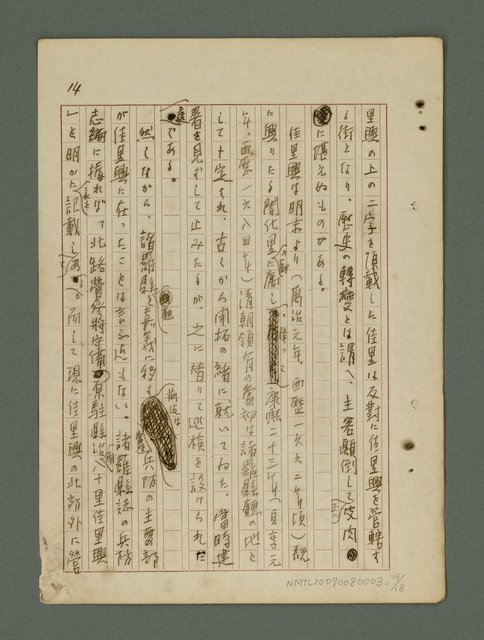 14
里興の上の二字を頂戴した佳里は反對に佳里興を管轄す
る街となり、歴史の轉變とは謂へ、主客顚倒して皮肉
に堪えぬものがある。
佳里興は明末より(萬治元年、西歷一六六二年頃)既
に興りたる開化里に屬し、康熙二十三年(貞享元
年、西歷一六八四年)清朝領有の當初は諸羅縣廳の地と
して卜定され、古くから開拓の緒に就いてゐた。當時建
署を見ずして止みたるが、之に替りて巡檢を設けられた
である。
然しながら、諸羅縣を嘉義に移す兵防の主要部
が佳里興に在ったことは言ふ迄もない。諸羅縣誌の兵防
志編に據れば「北路營參將守備原駐縣治八十里佳里興
」と明かに記載しあり而して現に佳里興の北郊外に營
NMTL20070080003.15/18